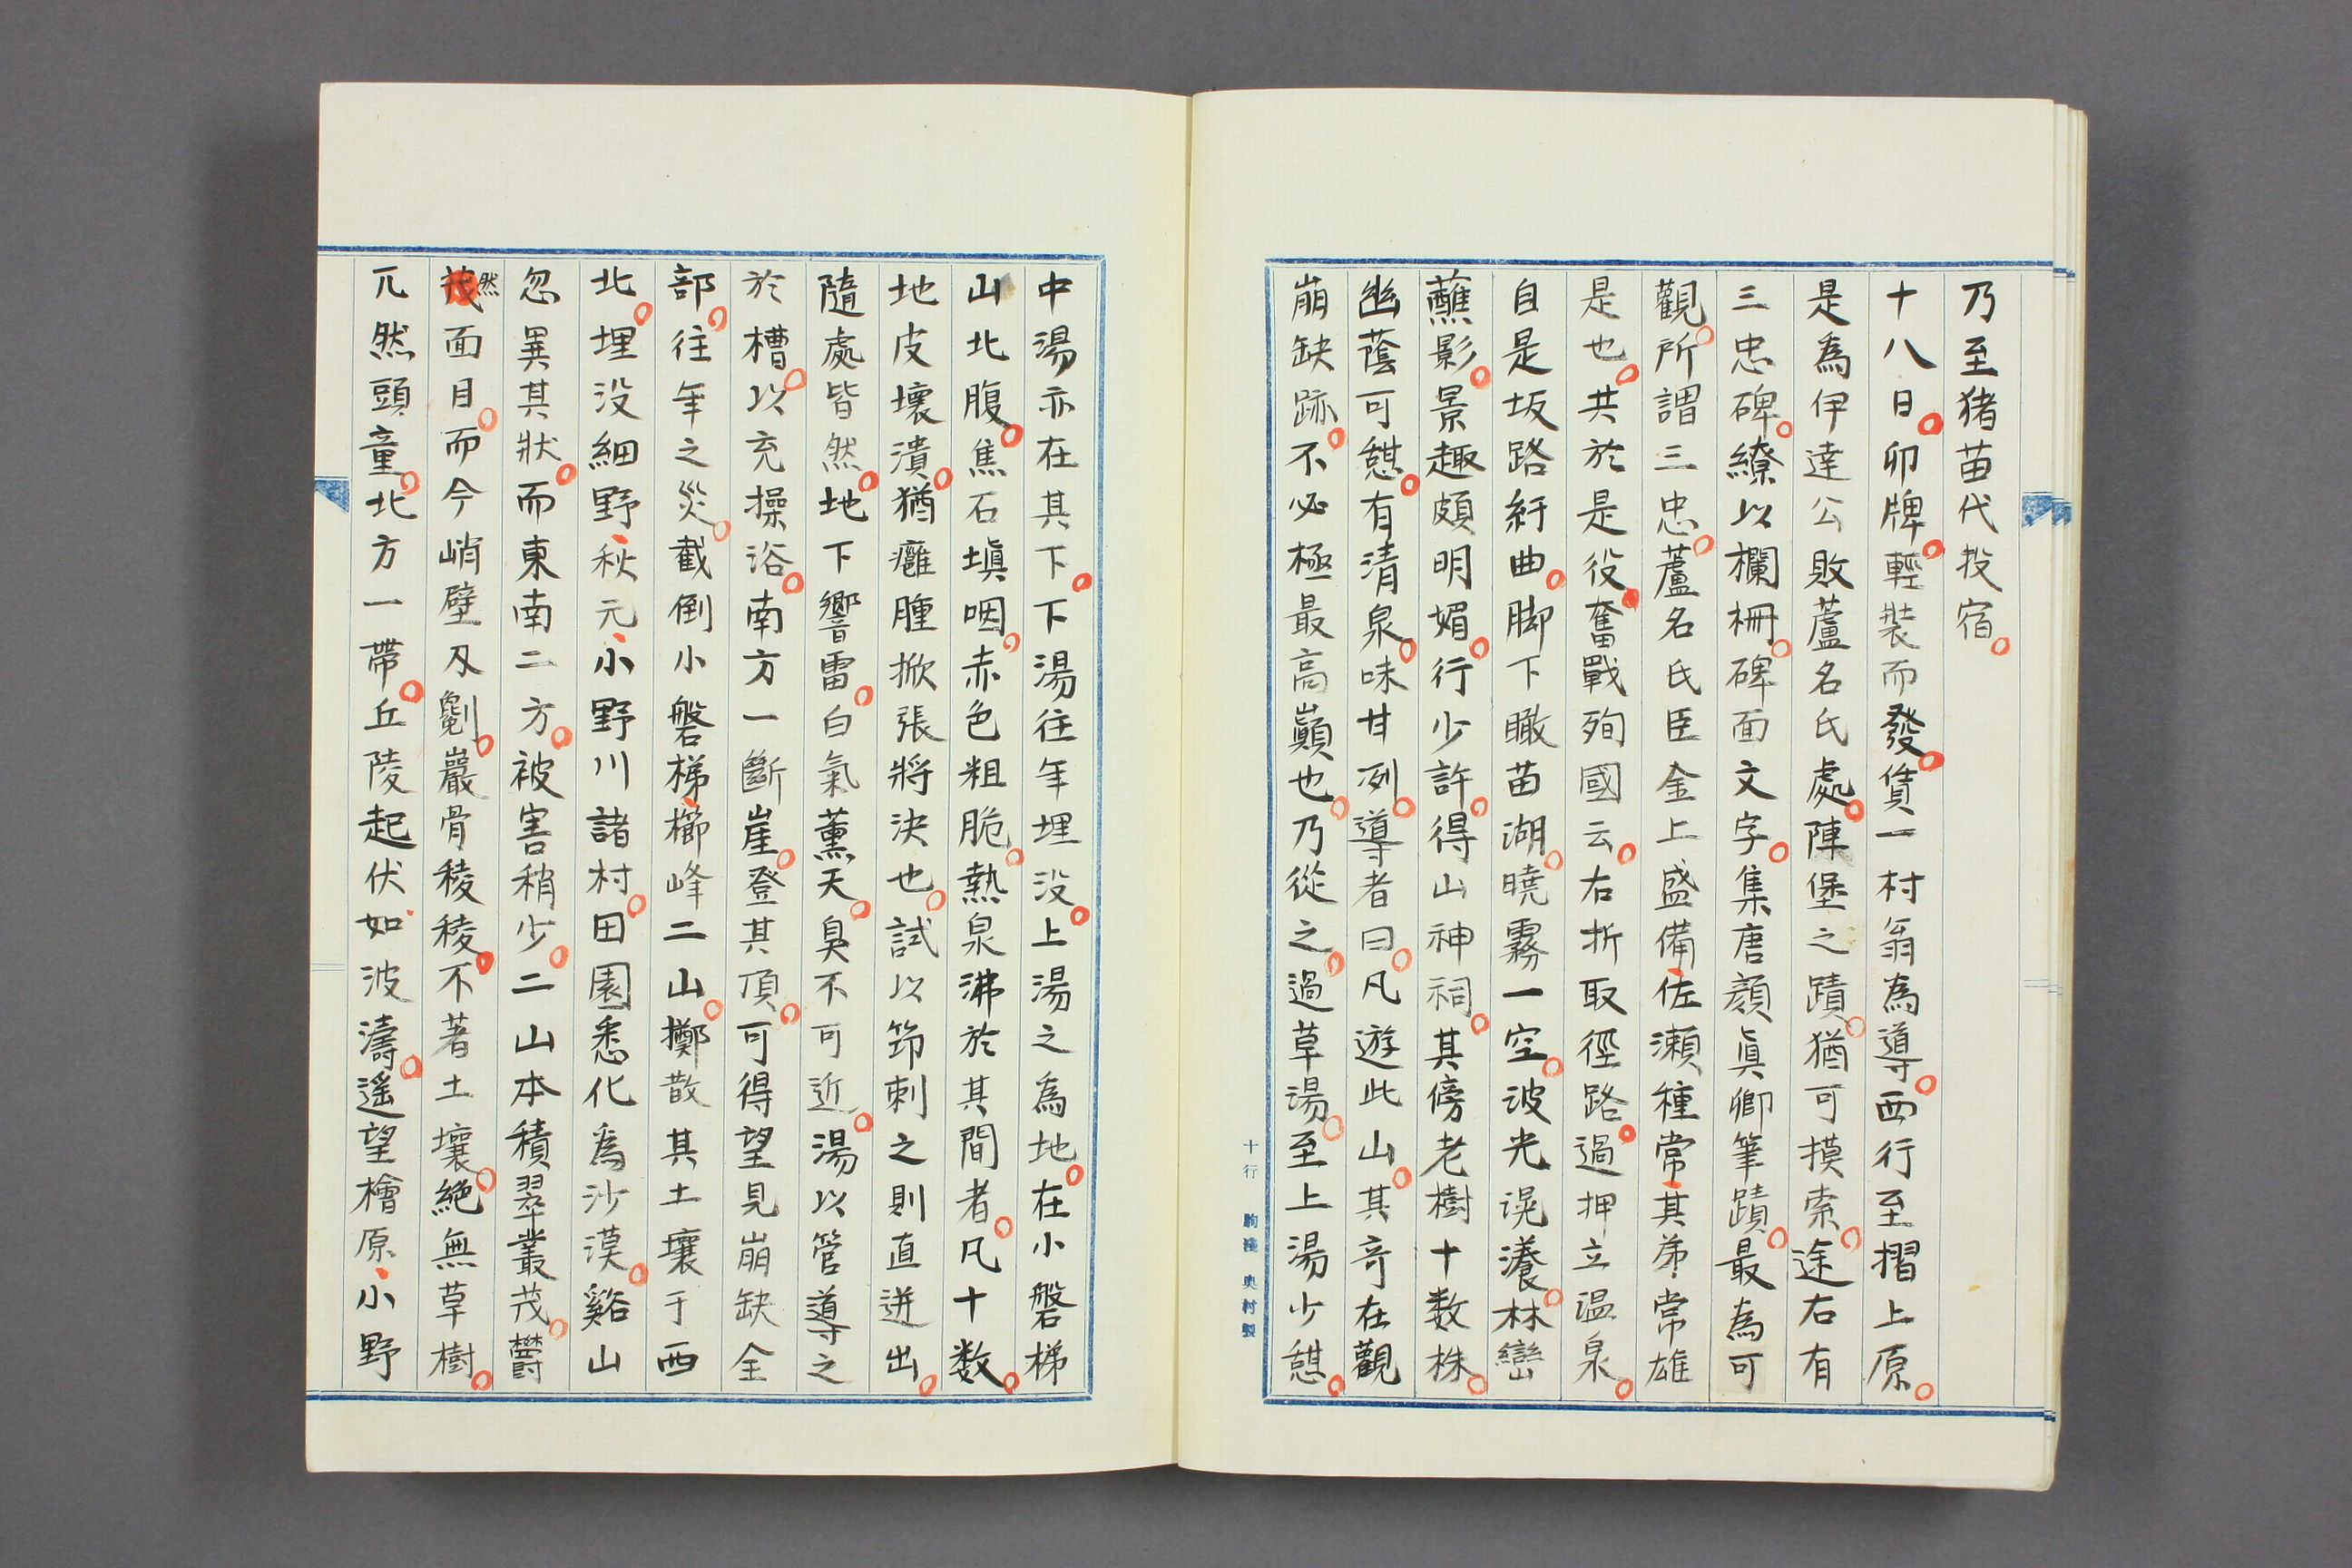 乃至猪苗代投宿。
十八日。卯牌。輕裝而發。賃一村翁為導。西行至摺上原。
是為伊達公敗蘆名氏處。陣堡之蹟。猶可摸索。途右有
三忠碑。繚以欄柵。碑面文字。集唐顔眞卿筆蹟。最為可
觀。所謂三忠。蘆名氏臣金上盛備、佐瀬種常、其弟常雄
是也。共於是役。奮戰殉國云。右折取徑路。過押立温泉。
自是坂路紆曲。脚下瞰苗湖。曉霧一空。波光滉瀁。林巒
蘸影。景趣頗明媚。行少許。得山神祠。其傍老樹十数株。
幽蔭可憇。有清泉。味甘冽。導者曰。凡遊此山。其奇在觀
崩缺跡。不必極最高巓也。乃從之。過草湯。至上湯少憇。
十行 奥村製
中湯亦在其下。下湯往年埋没。上湯之為地。在小磐梯
山北腹。焦石塡咽。赤色粗脆。熱泉沸於其間者。凡十数。
地皮壞潰。猶癰腫掀張將决也。試以筇刺之則直迸出。
隨處皆然。地下響雷。白氣薰天。臭不可近。湯以管導之
於槽。以充操浴。南方一斷崖。登其頂。可得望見崩缺全
部。往年之災。截倒小磐梯、櫛峰二山。擲散其土壤于西
北。埋没細野、秋元、小野川諸村。田園悉化為沙漠。谿山
忽異其狀。而東南二方。被害稍少。二山本積翠叢茂。欝
然面目。而今峭壁刄劖。巖骨稜稜。不著土壤。絶無草樹。
兀然頭童。北方一帶。丘陵起伏如波濤。遥望檜原、小野